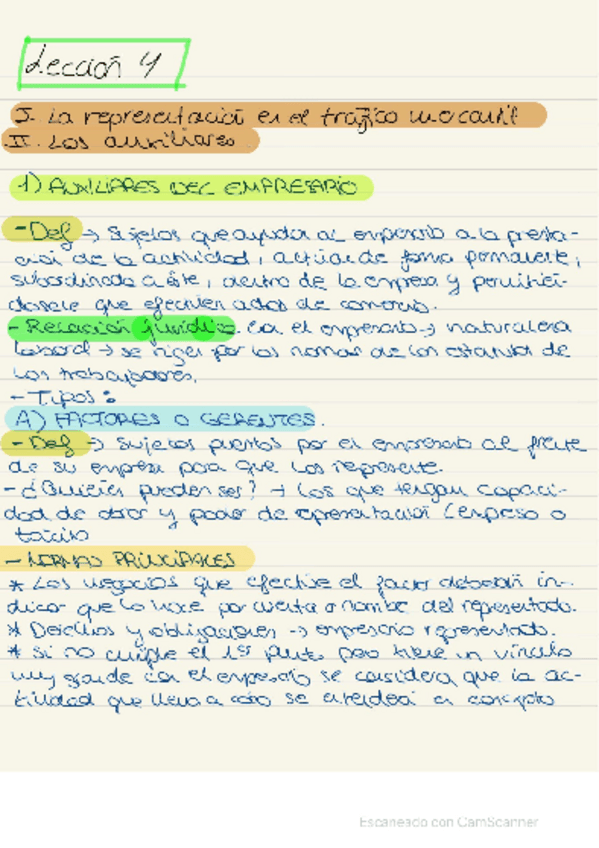 Lección 4
I. La representación en el tráfico mercantil
II. Los auxiliares.
1) AUXILIARES DEL EMPRESARIO
- Def → Sujetos que ayudan al empresario a la presta-
ción de la actividad, actúan de forma permanente,
subordinada a éste, dentro de la empresa y permitién-
dosele que efectúen actos de comercio.
- Relación jurídica con el empresario → naturaleza
laboral → se rigen por las normas de los estatutos de
los trabajadores.
- Tipos:
A) FACTORES O GERENTES.
- Def → Sujetos puestos por el empresario al frente
de su empresa para que los represente.
- ¿Quiénes pueden ser? → Los que tengan capaci-
dad de obrar y poder de representación (expreso o
tácito
- NORMAS PRINCIPALES
* Los negocios que efectúe el factor deberán in-
dicar que lo hace por cuenta o nombre del representado.
* Derechos y obligaciones → empresario representado.
* Si no cumple el 1er punto pero tiene un vínculo
muy grande con el empresario se considera que la ac-
tividad que lleva a cabo se entenderá en concepto
Escaneado con CamScanner